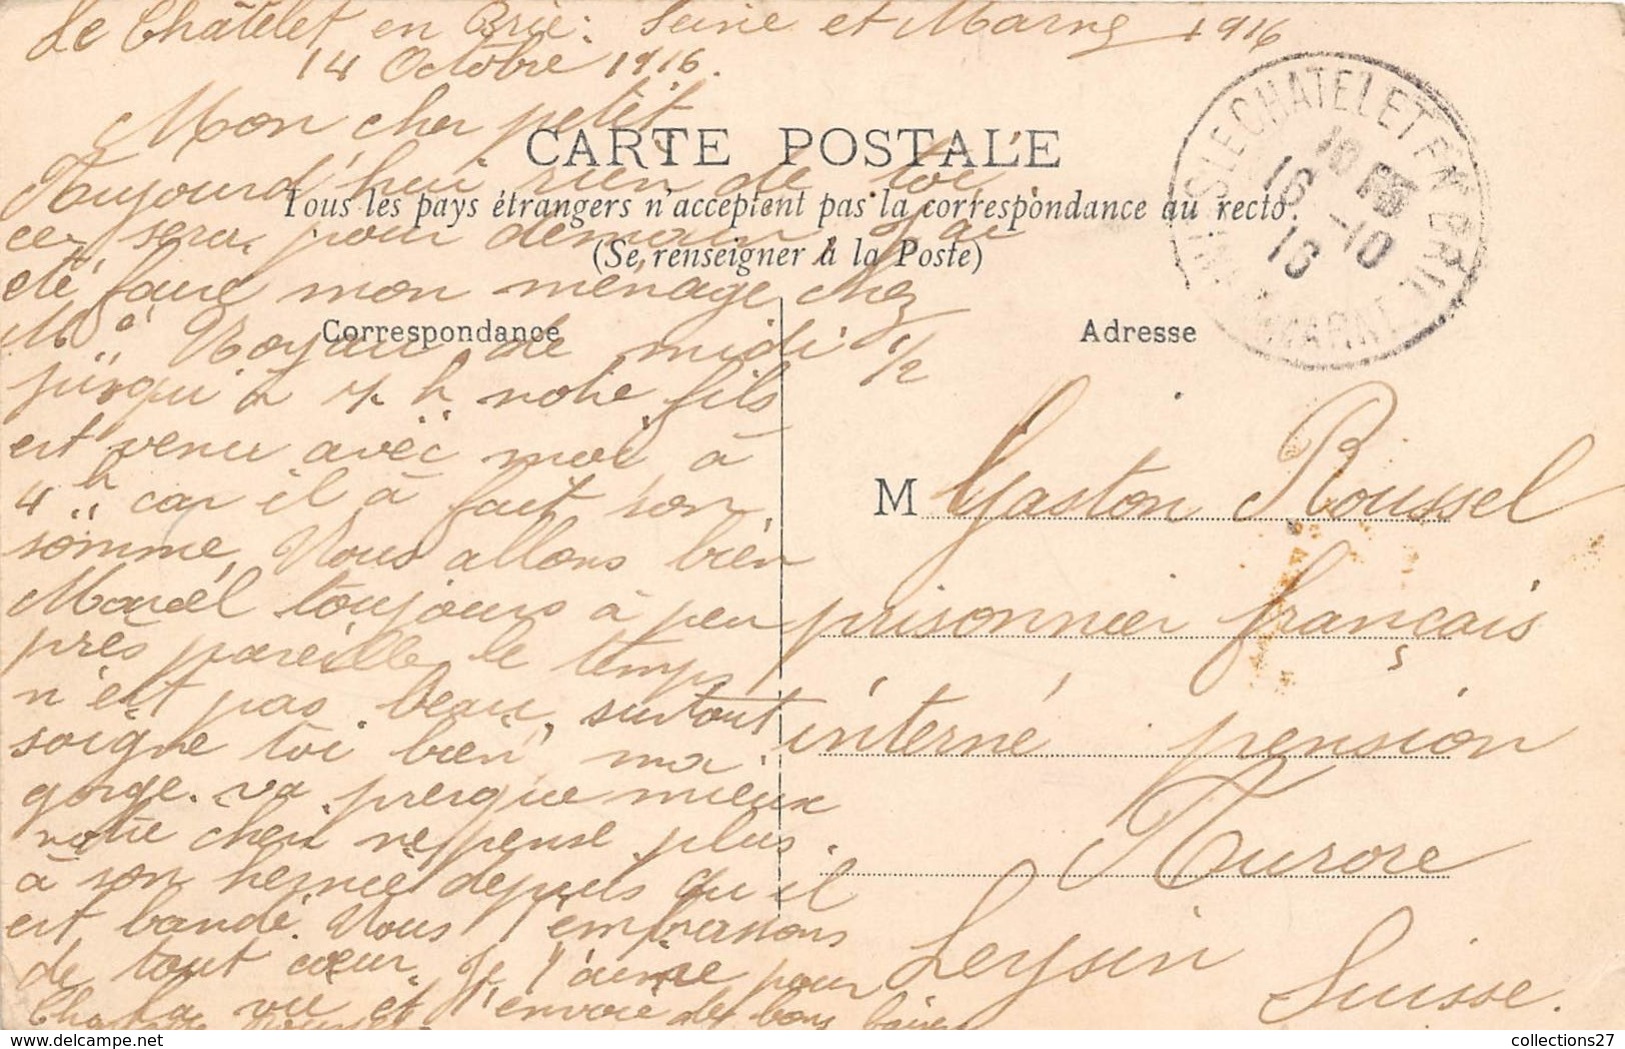 Le Châtelet en Brie: Seine et Marne 1916
14 Octobre 1916.
Mon cher petit
Aujourd'hui rien de toi,
ce sera pour demain J'ai
été faire mon ménage chez
Me Royau de midi 1/2
jusqu'à 4 h notre fils
est venu avec moi à
4h car il a fait son
somme, Nous allons bien
Marcel toujours à peu
près pareille le temps
n'est pas beau, surtout
soigne toi bien, ma
gorge va presque mieux
notre cheri ne pense plus
à son hernie depuis qu'il
est bandé. Nous t'embrassons
de tout cœur. Je t'aime pour
la vie et t'envoie de bons baisers
CARTE POSTALE
Tous les pays étrangers n'acceptent pas la correspondance au recto.
(Se renseigner à la Poste)
Correspondance
Adresse
LE CHATELET EN BRIE
16 -10
16
M Gaston Roussel
prisonnier français
interné pension
Aurore
Leysin
Suisse.
collections27